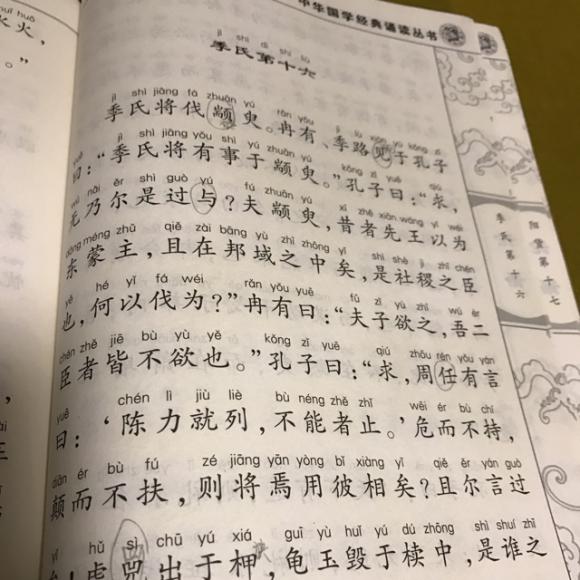 中华国学经典诵读丛书
jì shì dì shí liù
季氏第十六
jì shì jiāng fá zhuān yú rǎn yǒu jì lù xiàn yú kǒng zǐ
季氏将伐颛臾。冉有、季路见于孔子
yuē jì shì jiāng yǒu shì yú zhuān yú kǒng zǐ yuē qiú
曰：“季氏将有事于颛臾。”孔子曰：“求，
wú nǎi ěr shì guò yú fú zhuān yú xī zhě xiān wáng yǐ wéi
无乃尔是过与？夫颛臾，昔者先王以为
dōng méng zhǔ qiě zài bāng yù zhī zhōng yǐ shì shè jì zhī chén
东蒙主，且在邦域之中矣，是社稷之臣
yě hé yǐ fá wéi rǎn yǒu yuē fū zǐ yù zhī wú èr
也，何以伐为？”冉有曰：“夫子欲之，吾二
chén zhě jiē bù yù yě kǒng zǐ yuē qiú zhōu rén yǒu yán
臣者皆不欲也。”孔子曰：“求，周任有言
yuē chén lì jiù liè bù néng zhě zhǐ wēi ér bù chí
曰：‘陈力就列，不能者止。’危而不持，
diān ér bù fú zé jiāng yān yòng bǐ xiàng yǐ qiě ěr yán guò
颠而不扶，则将焉用彼相矣？且尔言过
yǐ hǔ sì chū yú xiá guī yù huǐ yú dú zhōng shì shuí zhī
矣！虎兕出于柙，龟玉毁于椟中，是谁之
季氏第十六
阳货第十七
huǒ
水火，
。”